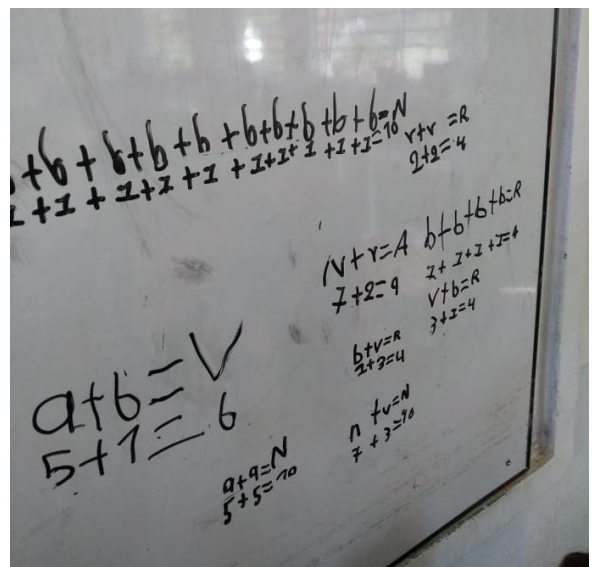 +b + b+b +b +b+b+b +b +b=N
1 +1 + 1+1 +1 +1+1+1 +1+1=10
r+r =R
2+2=4
N+r=A
7+2=9
b+b+b+b=R
1+1+1+1=4
v+b=R
3+1=4
b+v=R
1+3=4
a+b=V
5+1=6
n +v=N
7 +3=10
a+a=N
5+5=10